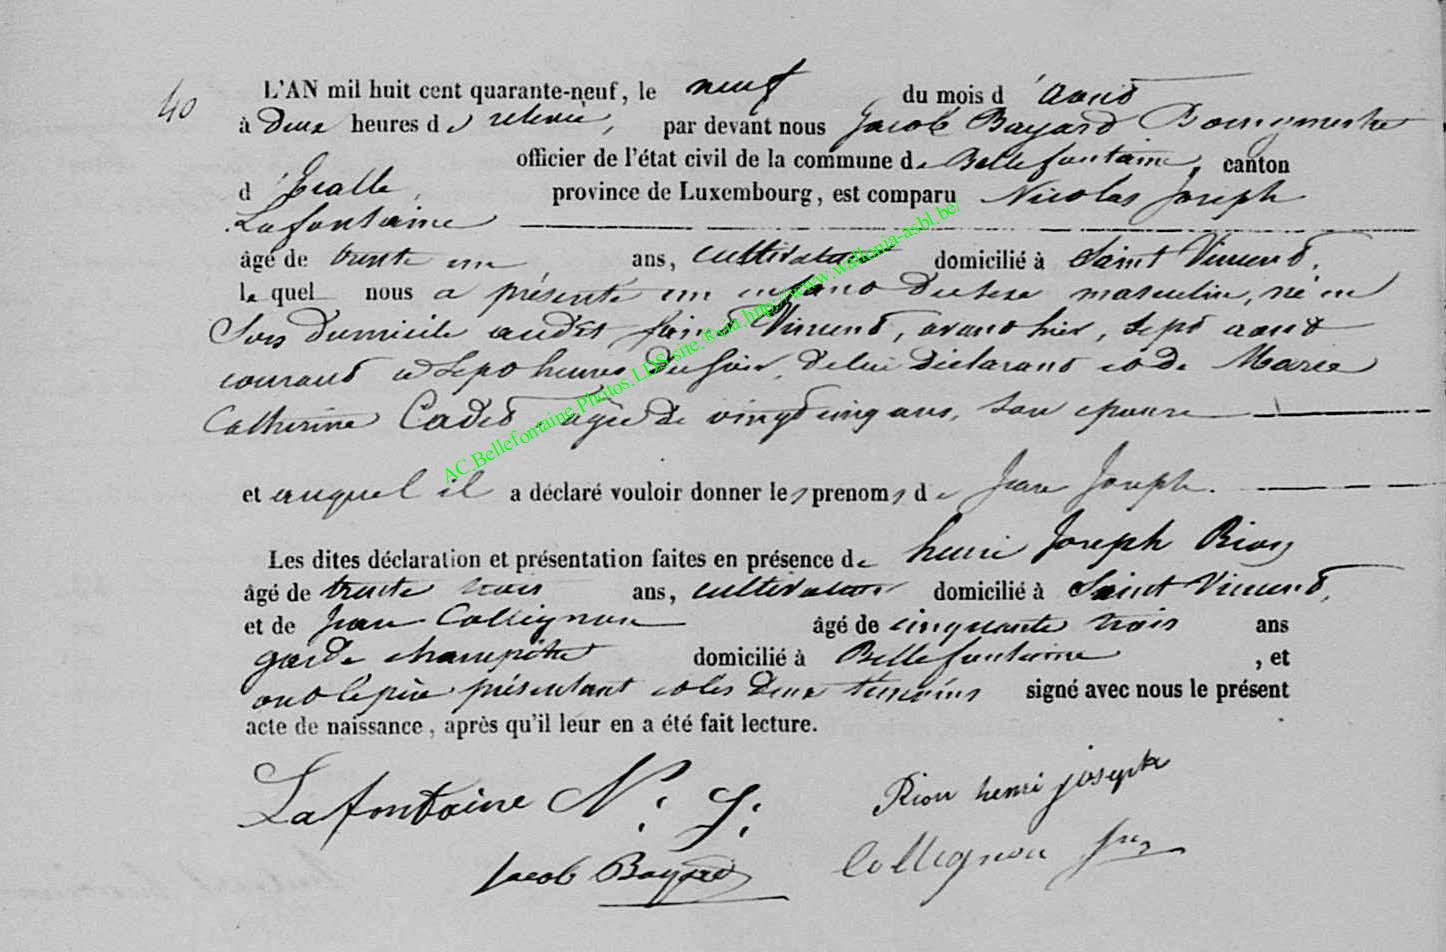 40
L'AN mil huit cent quarante-neuf, le neuf du mois d'août
à deux heures de relevée, par devant nous Jacob Bayard Bourgmestre
officier de l'état civil de la commune de Bellefontaine, canton
d'Etalle, province de Luxembourg, est comparu Nicolas Joseph
Lafontaine
âgé de trente un ans, cultivateur domicilié à Saint Vincent,
le quel nous a présenté un enfant du sexe masculin, né en
son domicile audit Saint Vincent, avant hier, sept août
courant à sept heures du soir, de lui déclarant et de Marie
Catherine Cadet âgée de vingt cinq ans, son épouse
et auquel il a déclaré vouloir donner les prenoms de Jean Joseph.
Les dites déclaration et présentation faites en présence de henri Joseph Rion
âgé de trente trois ans, cultivateur domicilié à Saint Vincent,
et de Jean Collignon âgé de cinquante trois ans
garde champêtre domicilié à Bellefontaine, et
ont le père présentant et les deux témoins signé avec nous le présent
acte de naissance, après qu'il leur en a été fait lecture.
Lafontaine N. J. Rion henri joseph
Jacob Bayard Collignon
AC.Bellefontaine.Photos.LDS site.
http://www.wallonia-asbl.be/